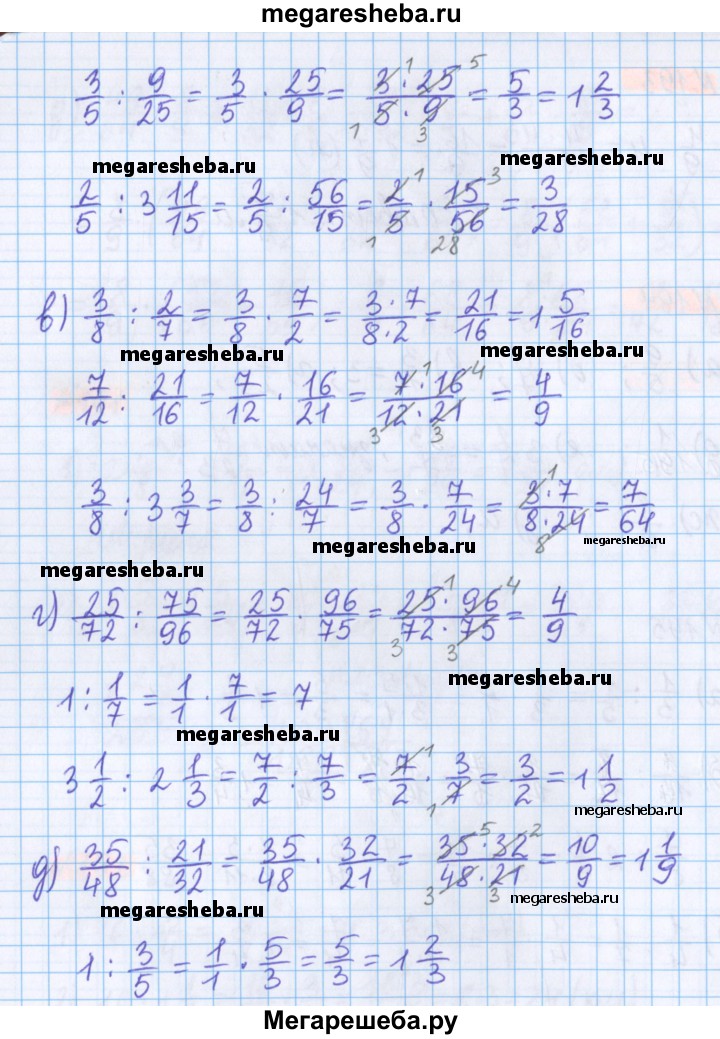 megaresheba.ru
3/5 : 9/25 = 3/5 · 25/9 = 3·25/5·9 = 5/3 = 1 2/3
1 5 1 3
megaresheba.ru megaresheba.ru
2/5 : 3 11/15 = 2/5 : 56/15 = 2/5 · 15/56 = 3/28
1 3 1 28
в) 3/8 : 2/7 = 3/8 · 7/2 = 3·7/8·2 = 21/16 = 1 5/16
megaresheba.ru megaresheba.ru
7/12 : 21/16 = 7/12 · 16/21 = 7·16/12·21 = 4/9
1 4 3 3
3/8 : 3 3/7 = 3/8 : 24/7 = 3/8 · 7/24 = 3·7/8·24 = 7/64
1 8
megaresheba.ru megaresheba.ru
г) 25/72 : 75/96 = 25/72 · 96/75 = 25·96/72·75 = 4/9
1 4 3 3
megaresheba.ru
1 : 1/7 = 1/1 · 7/1 = 7
megaresheba.ru
3 1/2 : 2 1/3 = 7/2 : 7/3 = 7/2 · 3/7 = 3/2 = 1 1/2
1 1
megaresheba.ru
д) 35/48 : 21/32 = 35/48 · 32/21 = 35·32/48·21 = 10/9 = 1 1/9
5 2 3 3
megaresheba.ru megaresheba.ru
1 : 3/5 = 1/1 · 5/3 = 5/3 = 1 2/3
Мегарешеба.ру